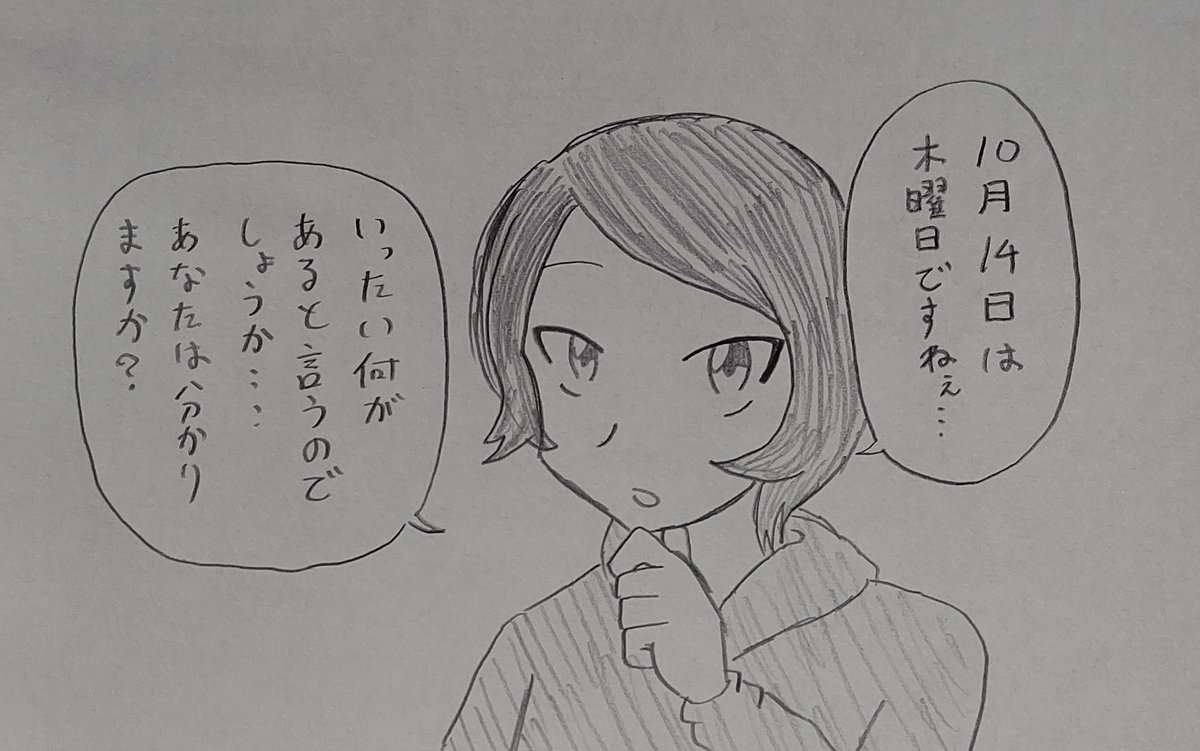 10月14日は
木曜日ですねぇ…
いったい何が
あると言うので
しょうか‥‥
あなたは分かり
ますか?